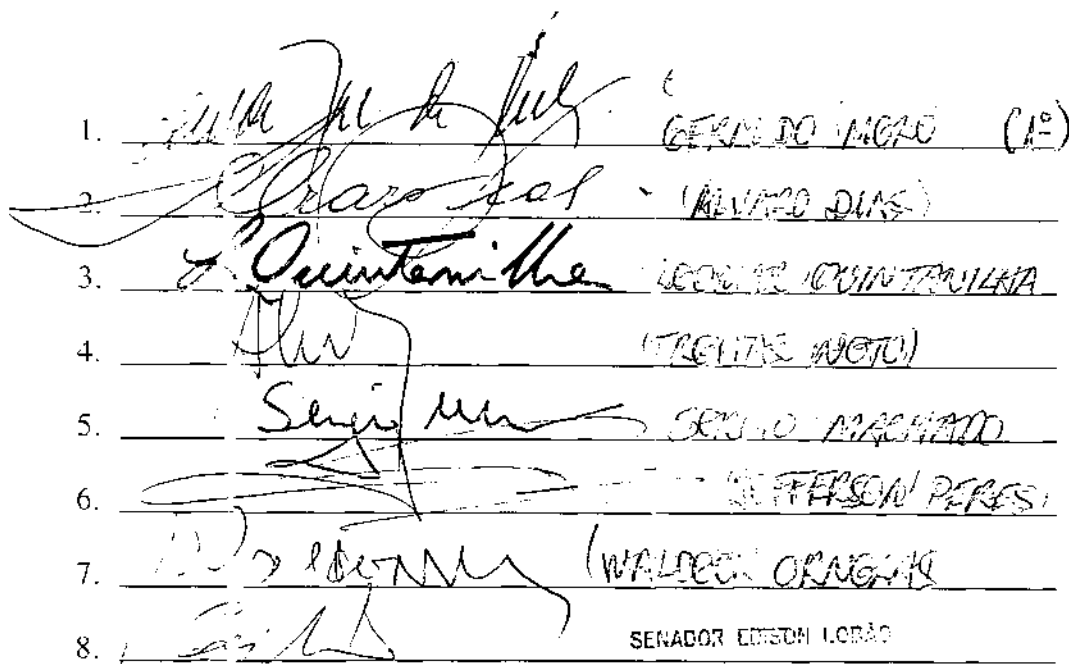 1. GERALDO MELO (1º)
2. Alvaro Dias (ALVARO DIAS)
3. L. Quintanilha LEOMAR QUINTANILHA
4. (FREITAS NETO)
5. Sergio SERGIO MACHADO
6. JEFFERSON PERES
7. (WALDECK ORNELAS
8. SENADOR EDISON LOBÃO